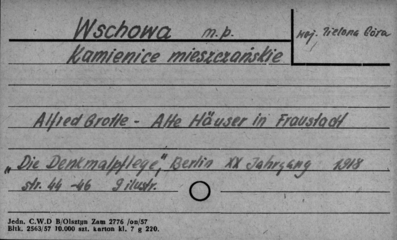 Wschowa m.p.
Woj. Zielona Góra
Kamienice mieszczańskie
Alfred Grotte - Alte Häuser in Fraustadt
„Die Denkmalpflege", Berlin XX Jahrgang 1918
str. 44-46 9 ilustr.
Jedn. C.W.D B/Olsztyn Zam 2776 /on/57
Bltk. 2563/57 10.000 szt. karton kl. 7 g 220.